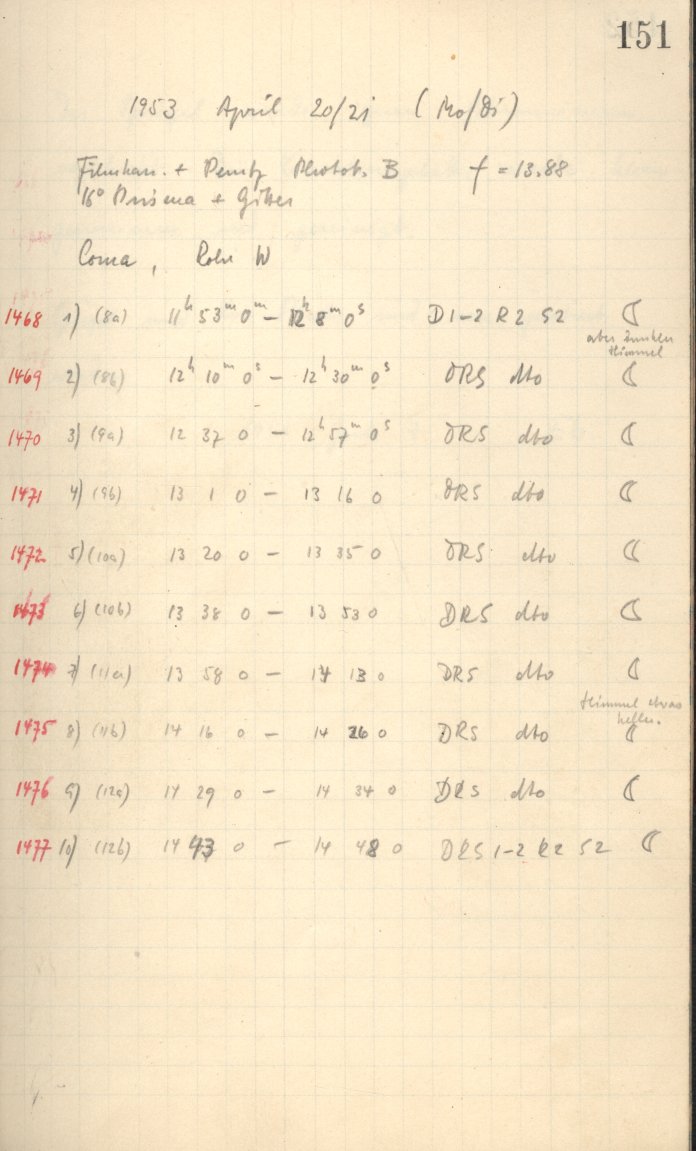 151
1953 April 20/21 (Mo/Di)
Filmkas. + Perutz Phototh. B f = 13.88
16° Prisma + Gitter
Coma, Rohr W
1468 1) (8a) 11ʰ 53ᵐ 0ᵐ – 12ʰ 8ᵐ 0ˢ D1–2 R2 S2 ☾
aber dunkler
Himmel
1469 2) (8b) 12ʰ 10ᵐ 0ˢ – 12ʰ 30ᵐ 0ˢ DRS dto ☾
1470 3) (9a) 12 37 0 – 12ʰ 57ᵐ 0ˢ DRS dto ☾
1471 4) (9b) 13 1 0 – 13 16 0 DRS dto ☾
1472 5) (10a) 13 20 0 – 13 35 0 DRS dto ☾
1473 6) (10b) 13 38 0 – 13 53 0 DRS dto ☾
1474 7) (11a) 13 58 0 – 14 13 0 DRS dto ☾
Himmel etwas
heller.
1475 8) (11b) 14 16 0 – 14 26 0 DRS dto ☾
1476 9) (12a) 14 29 0 – 14 34 0 DRS dto ☾
1477 10) (12b) 14 43 0 – 14 48 0 DRS 1–2 R2 S2 ☾